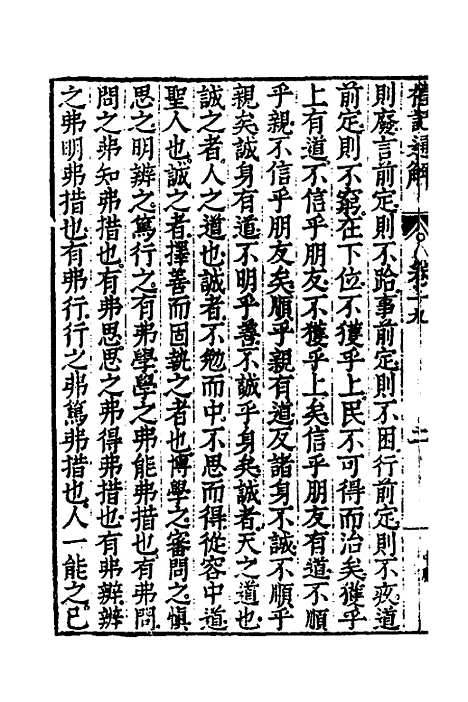 禮記通解 卷十九 二
則廢言前定則不跲事前定則不困行前定則不疚道
前定則不窮在下位不獲乎上民不可得而治矣獲乎
上有道不信乎朋友不獲乎上矣信乎朋友有道不順
乎親不信乎朋友矣順乎親有道反諸身不誠不順乎
親矣誠身有道不明乎善不誠乎身矣誠者天之道也
誠之者人之道也誠者不勉而中不思而得從容中道
聖人也誠之者擇善而固執之者也博學之審問之慎
思之明辨之篤行之有弗學學之弗能弗措也有弗問
問之弗知弗措也有弗思思之弗得弗措也有弗辨辨
之弗明弗措也有弗行行之弗篤弗措也人一能之己